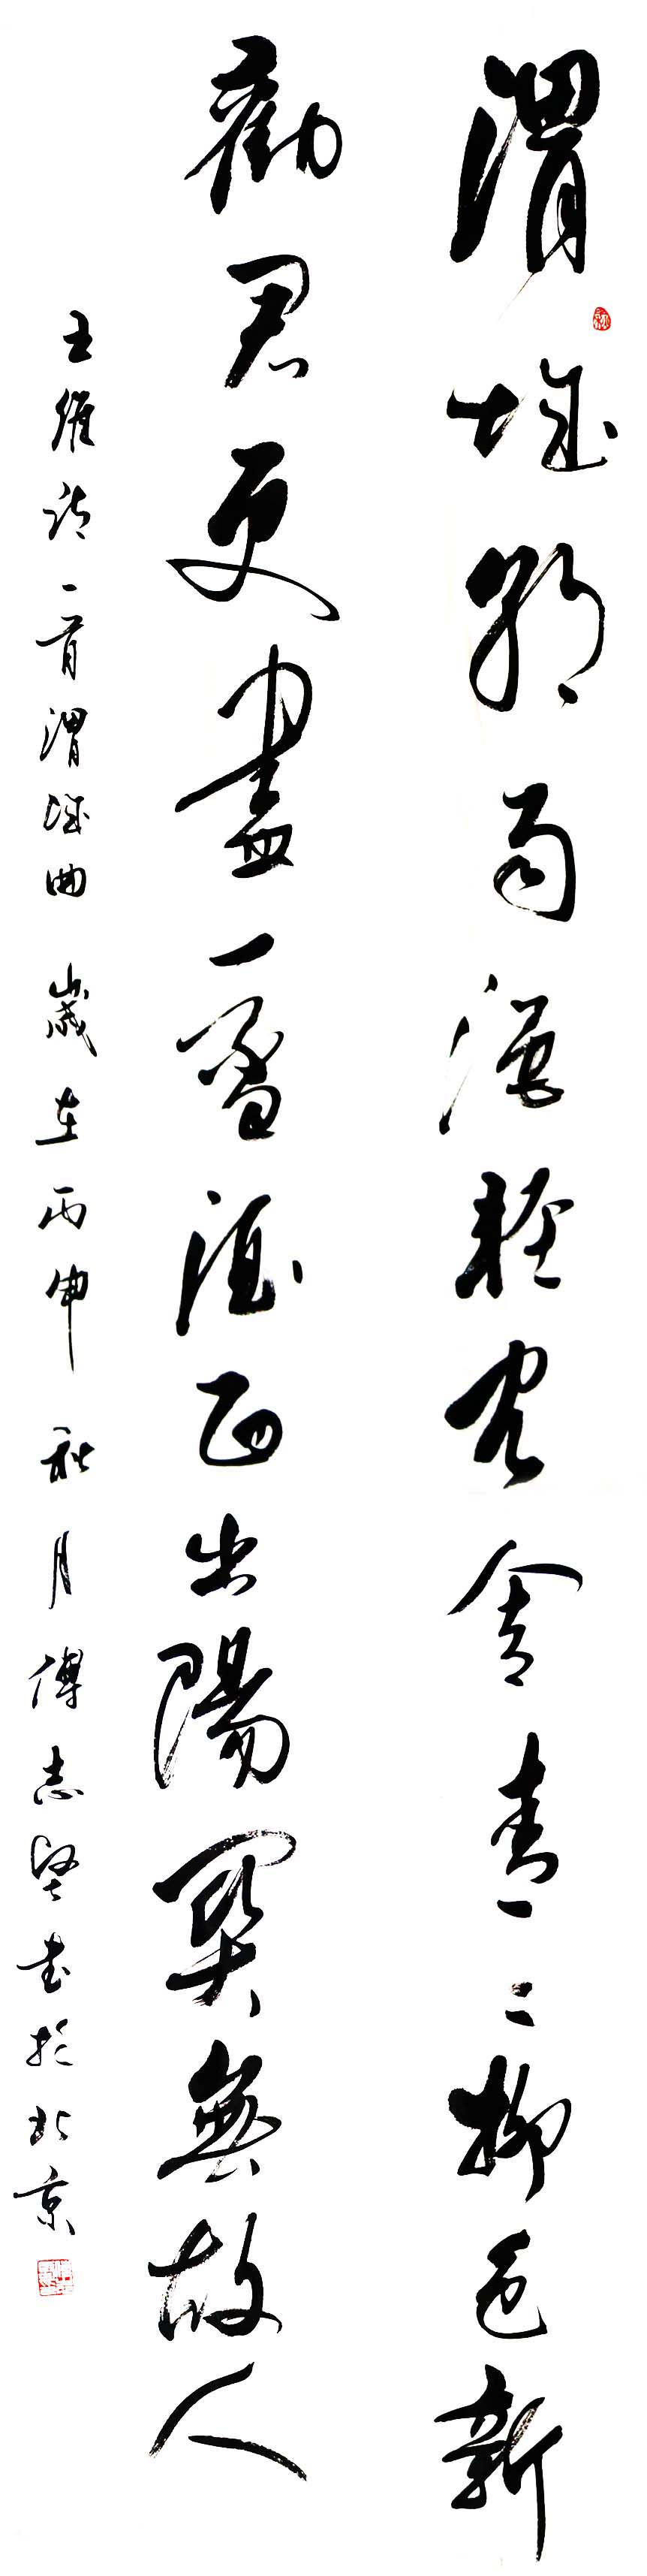 渭城朝雨浥輕客舍青〻柳色新
勸君更盡一盃酒西出陽關無故人
王維詩一首渭城曲 歲在丙申 秋月傅志堅書於北京